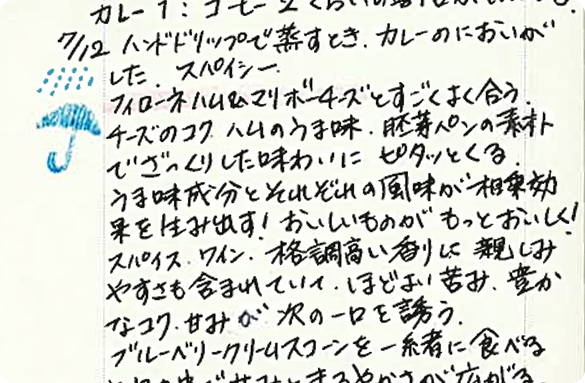 カレー1:コーヒー2くらいの
7/12 ハンドドリップで蒸すとき、カレーのにおいが
した。スパイシー
フィローネハム&マリボーチーズとすごくよく合う。
チーズのコク、ハムのうま味、胚芽パンの素朴
でざっくりした味わいに ピタッとくる。
うま味成分とそれぞれの風味が相乗効
果を生み出す!おいしいものが もっとおいしく!
スパイス、ワイン、格調高い香りに 親しみ
やすさも含まれていて、ほどよい苦み、豊か
なコク、甘みが 次の一口を誘う。
ブルーベリークリームスコーンを一緒に食べる